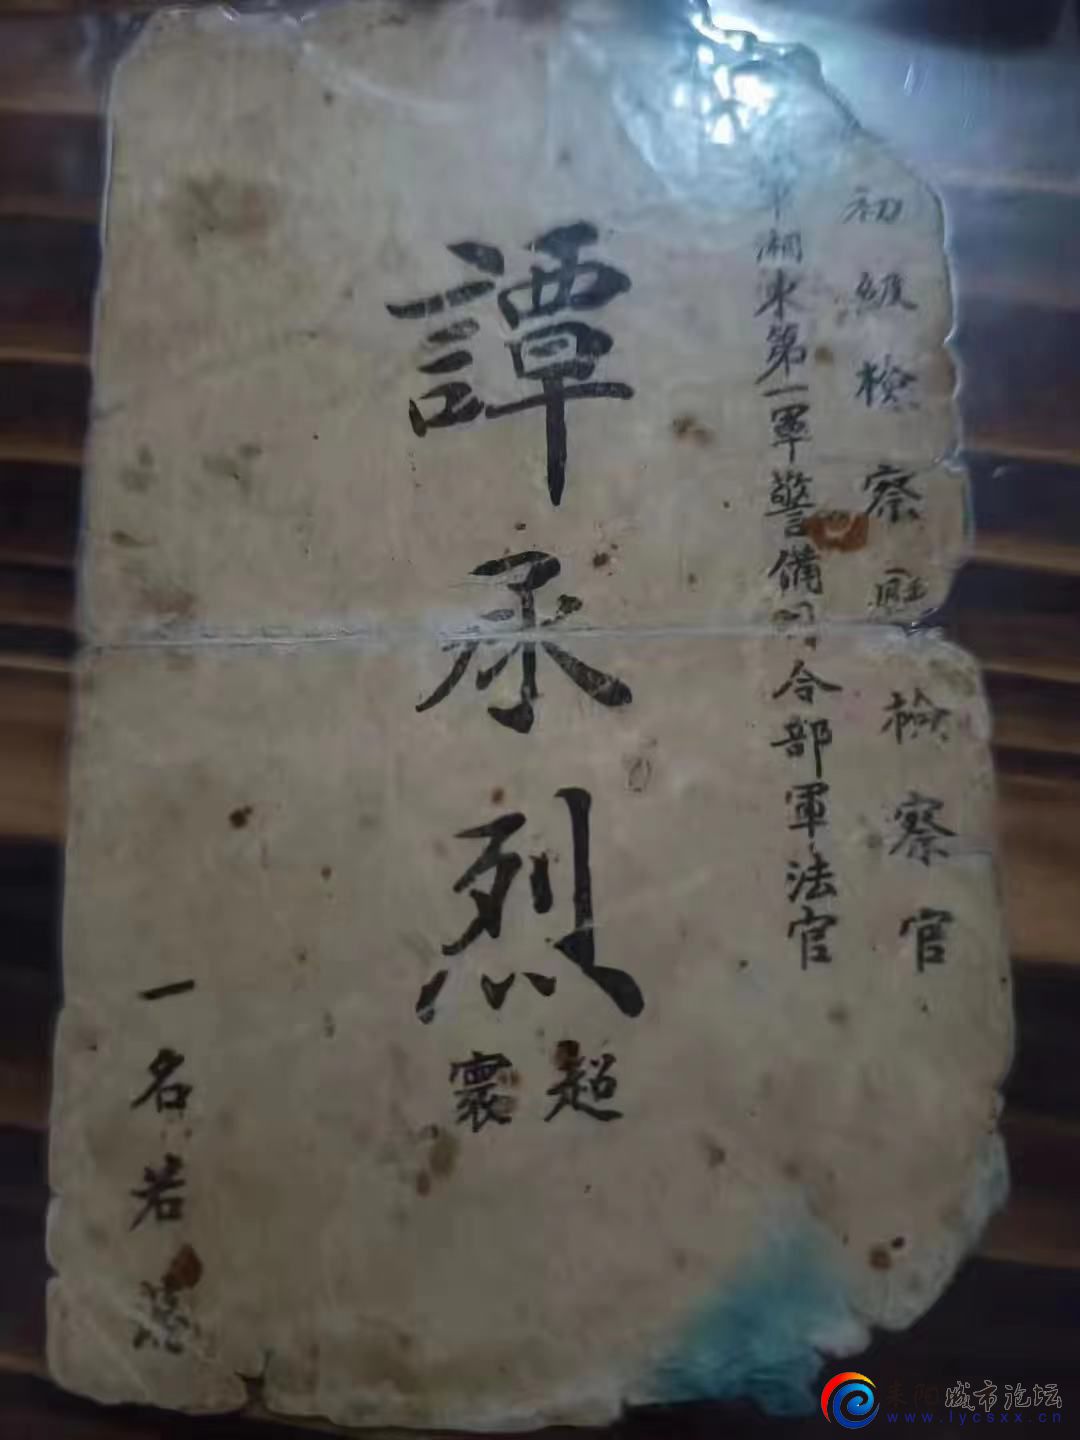 初級檢察廳檢察官
湘東第一軍警備司令部軍法官
譚承烈
超寰
一名若
耒阳城市论坛
www.lycsxx.cn